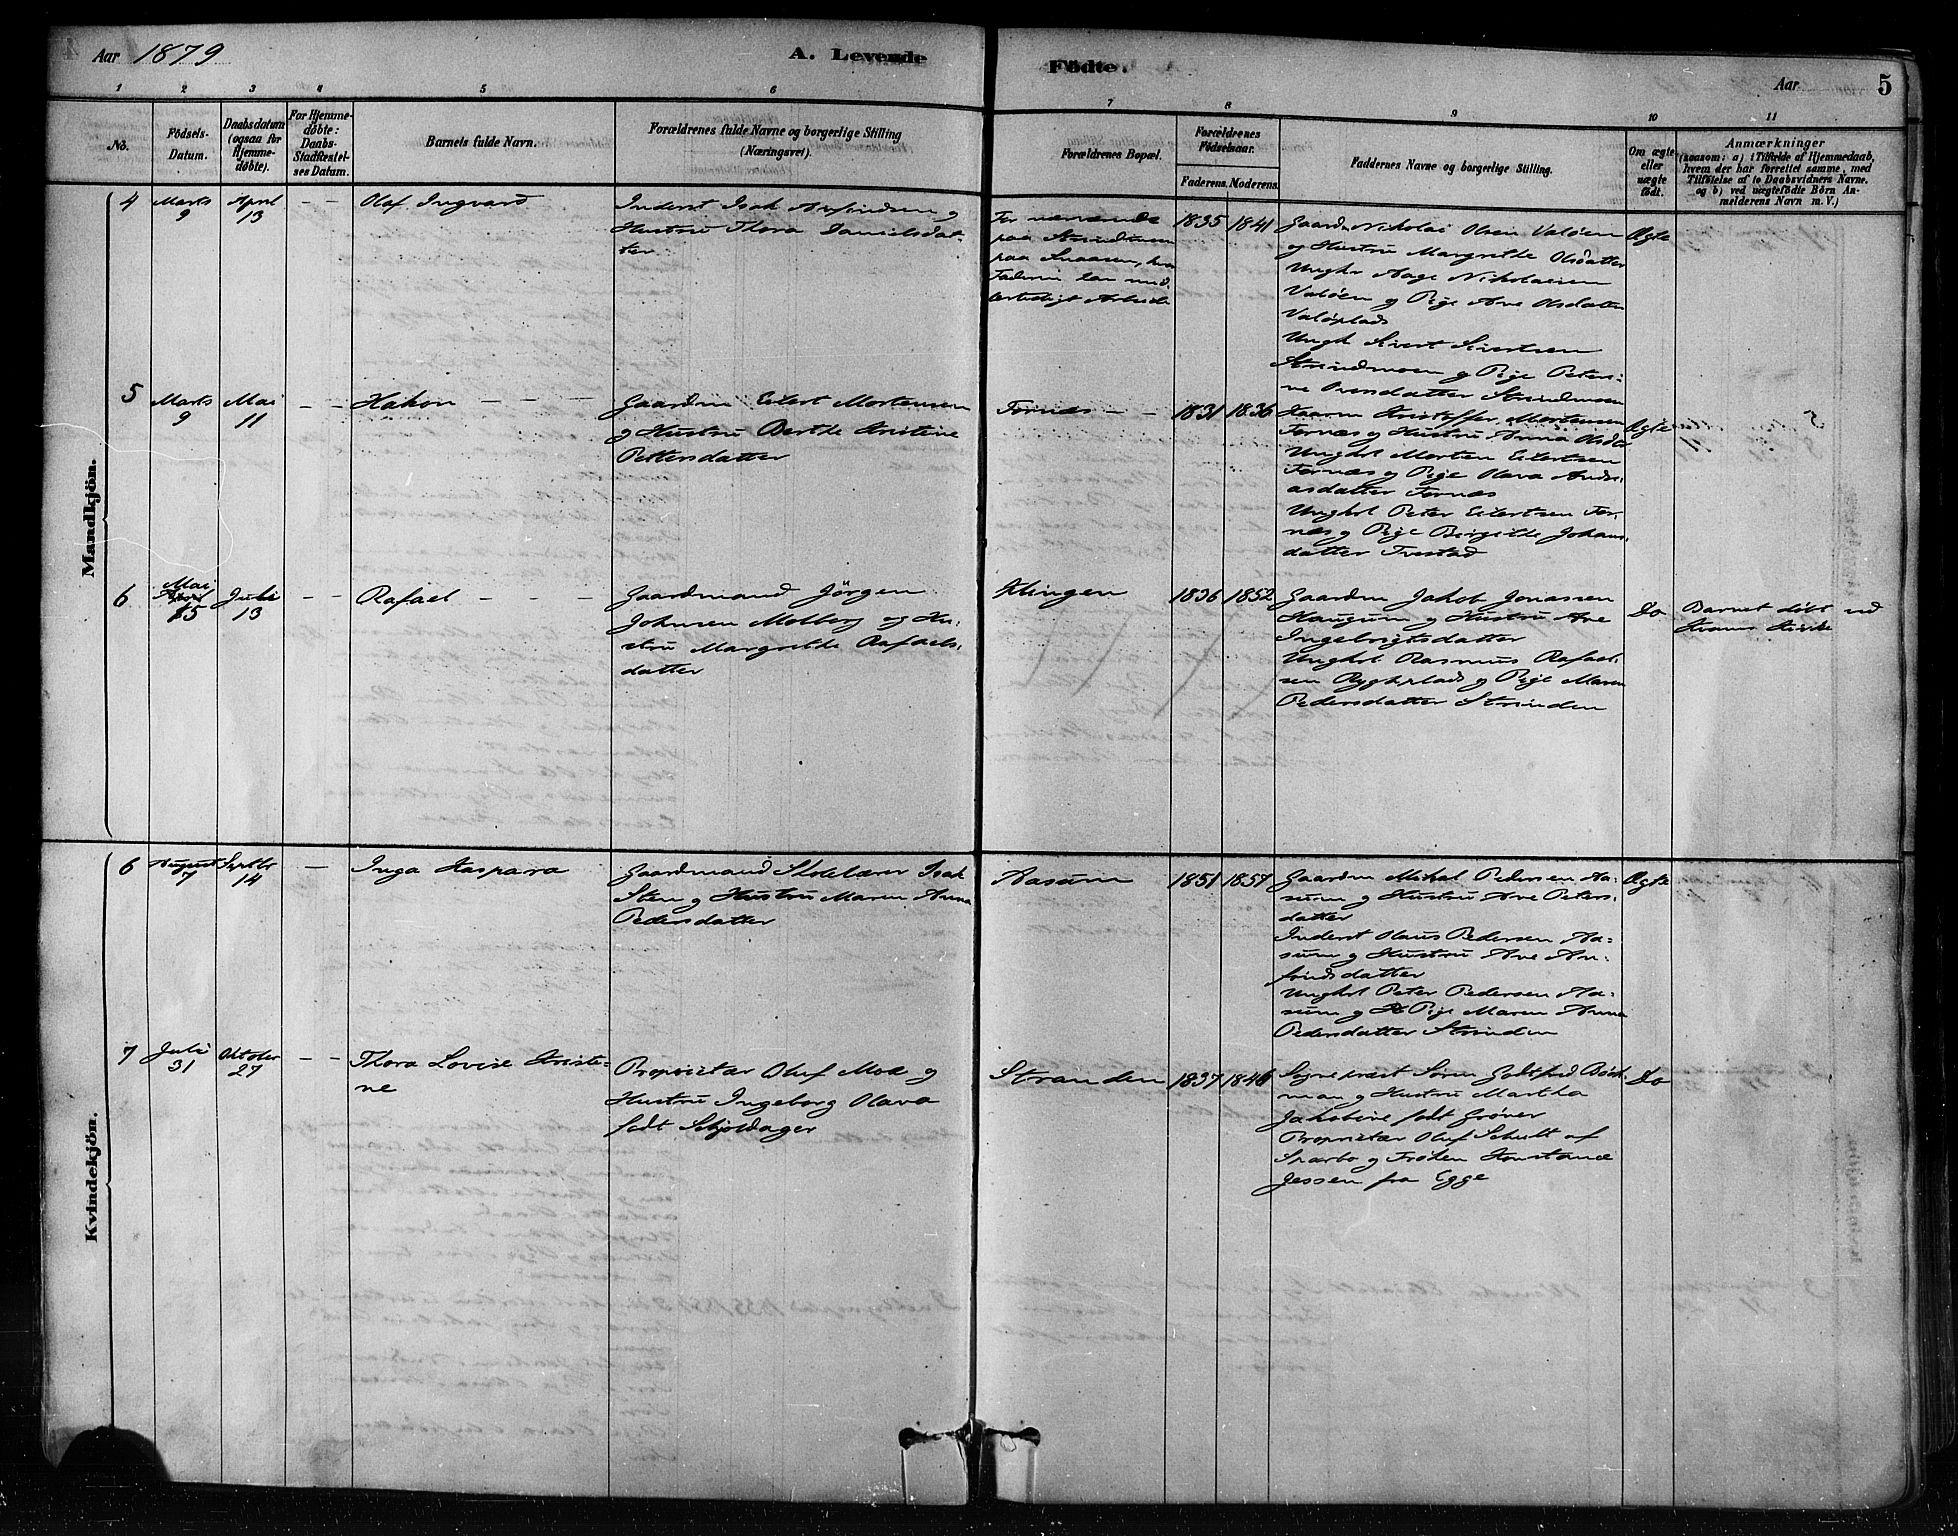 Aar 1879
A. Levende
Födte.
Aar
5
1
2
3
4
5
6
7
8
9
10
11
No.
Födsels-
Datum.
Daabsdatum
(ogsaa for
Hjemme-
döbte).
For Hjemme-
döbte:
Daabs-
Stadfæstel-
ses Datum.
Barnets fulde Navn.
Forældrenes fulde Navne og borgerlige Stilling
(Næringsvei).
Forældrenes Bopæl.
Forældrenes
Födselsaar.
Faderens. Moderens.
Faddernes Navne og borgerlige Stilling.
Om ægte
eller
uægte
födt.
Anmærkninger
(saasom: a) i Tilfælde af Hjemmedaab,
hvem der har forrettet samme, med
Tilföielse af to Daabsvidners Navne.
og b) ved uægtefödte Börn An-
melderens Navn m. V.)
Mandkjön.
4
Marts
9
April
13
- -
Olaf Ingvard
Inderst Isak Arfindsen og
Hustru Thora Danielsdat-
ter
For nærværende
paa Strindmoen
paa Snaasen, hvor
Faderen har mid-
lertidigt Arbeide
1835
1841
Gaardm Nikolai Olsen Valöen
og Hustru Margrethe Olsdatter
Ungkr Aage Nikolaisen
Valöen og Pige Ane Olsdatter
Valöplads
Ungk Sivert Sivertsen
Strindmoen og Pige Peter-
ine Iversdatter Strindmoen
Ægte
5
Marts
9
Mai
11
- -
Hakon - - -
Gaardm Eilert Mortensen
og Hustru Berthe Kristine
Pettersdatter
Fornæs - -
1831
1836
Gaardm Kristoffer Mortensen
Fornæs og Hustru Anna Olsdtr
Ungkl Morten Eilertsen
Fornæs og Pige Olava Andre-
asdatter Fornæs
Ungkl Peter Eilertsen For-
næs og Pige Birgitte Johans-
datter Tvestad
Ægte
6
Mai
April
15
Juli
13
- -
Rafael - - -
Gaardmand Jörgen
Johnsen Molberg og Hu-
stru Margrethe Rafaels-
datter
Klingen
1836
1852
Gaardm Jakob Jonassen
Haugum og Hustru Ane
Ingebrigtsdatter
Ungkl Rasmus Rafael-
sen Rygplads og Pige Maren
Pedersdatter Strinden
Do
Barnet döbt ved
Kvams Kirke
Kvindekjön.
6
August
7
Septbr
14
-
Inga Kaspara
Gaardmand Skolelærer Isak
Sten og Hustru Maren Anna
Pedersdatter
Aasum
1851
1857
Gaardm Mikal Pedersen Aa-
sum og Hustru Ane Peters-
datter
Inderst Olaus Pedersen Aa-
sum og Hustru Ane An-
findsdatter
Ungkl Peter Pedersen Aa-
sum og Pige Maren Anna
Pedersdatter Strinden
Ægte
7
Juli
31
Oktober
27
- -
Thora Lovise Kristi-
ne
Proprietær Oluf Moe og
Hustru Ingeborg Olava
födt Schjoldager
Stranden
1837
1846
Sognepræst Sören Gotfred Böck-
man og Hustru Martha
Jakobine födt Gröner
Proprietær Oluf Schult af
Sparbo og Fröken Konstance
Jessen fra Egge
Do